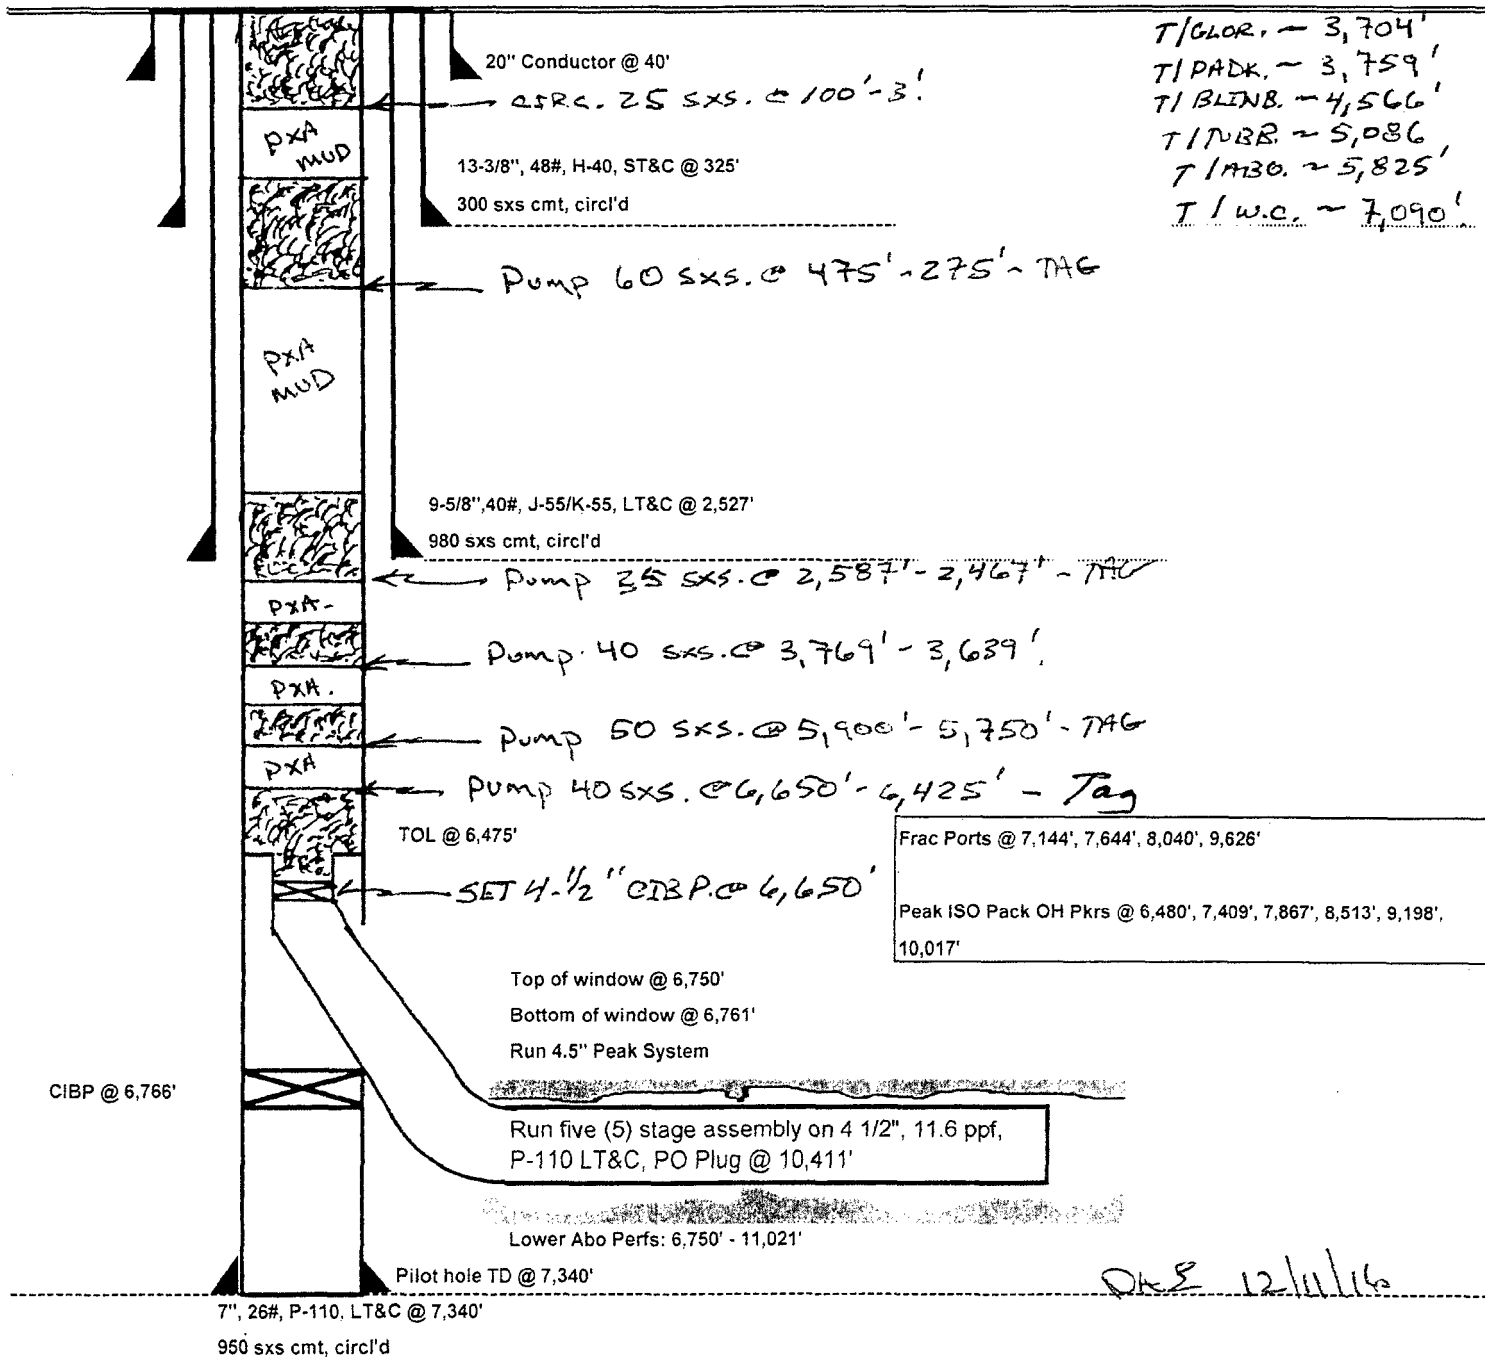 T/GLOR. ~ 3,704'
T/PADK. ~ 3,759'
T/BLINB. ~ 4,566'
T/TUBB. ~ 5,086
T/ABO. ~ 5,825'
T/W.C. ~ 7,090'
20" Conductor @ 40'
CIRC. 25 SXS. @ 100'-3'.
PXA
MUD
13-3/8", 48#, H-40, ST&C @ 325'
300 sxs cmt, circl'd
Pump 60 SXS. @ 475'-275'- TAG
PXA
MUD
9-5/8",40#, J-55/K-55, LT&C @ 2,527'
980 sxs cmt, circl'd
Pump 25 SXS. @ 2,587'-2,467'- TAG
PXA-
Pump 40 SXS. @ 3,769'-3,639'.
PXA.
Pump 50 SXS. @ 5,900'-5,750'- TAG
PXA
Pump 40 SXS. @ 6,650'-6,425' - Tag
TOL @ 6,475'
Frac Ports @ 7,144', 7,644', 8,040', 9,626'
SET 4-1/2" CIBP. @ 6,650'
Peak ISO Pack OH Pkrs @ 6,480', 7,409', 7,867', 8,513', 9,198',
10,017'
Top of window @ 6,750'
Bottom of window @ 6,761'
Run 4.5" Peak System
CIBP @ 6,766'
Run five (5) stage assembly on 4 1/2", 11.6 ppf,
P-110 LT&C, PO Plug @ 10,411'
Lower Abo Perfs: 6,750' - 11,021'
Pilot hole TD @ 7,340'
12/11/16
7", 26#, P-110, LT&C @ 7,340'
950 sxs cmt, circl'd